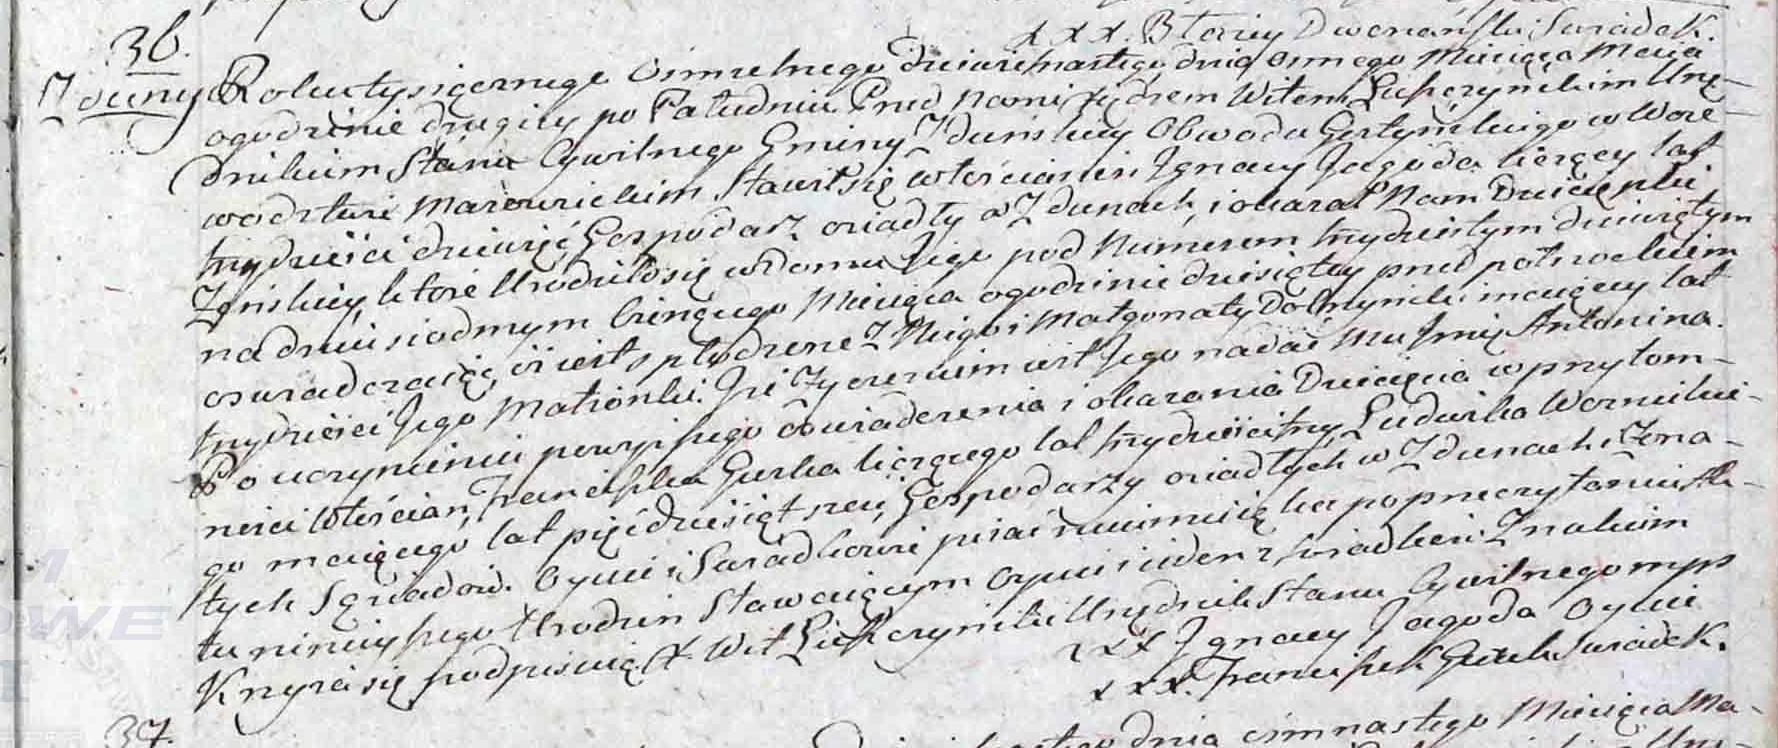 x x x. Błażey Dworański Swiadek.
36.
Zduny
Roku tysiącznego Osmsetnego dziewiętnastego dnia osmego Miesiąca Maia
o godzinie drugiey po Południu Przed Nami Xiędzem Witem Urzę-
dnikiem Stanu Cywilnego Gminy Zduńskiey Obwodu Gostyńskiego w Woie-
wodztwie Mazowieckim Stawił się włościanin Ignacy Jagoda liczący lat
trzydzieści dziewięć, Gospodarz osiadły w Zdunach, i okazał Nam Dziecię płci
Żeńskiey, które Urodziło się w domu Jego pod Numerem trzydziestym dziewiętym
na dniu siodmym bieżącego Miesiąca o godzinie dziesiątey przed południem
oswiadczaiąc, iż iest spłodzone z Niego i Małgorzaty maiącey lat
trzydzieści Jego Małżonki. Iż życzeniem iest Jego nadać mu Imię Antonina.
Po uczynieniu powyższego oswiadczenia i okazania Dziecięcia w przytom-
ności Włościan, Franciszka Gurka liczącego lat trzydzieści trzy, Ludwika
go maiącego lat pięćdziesiąt sześć, Gospodarzy osiadłych w Zdunach, Zna-
łych Sąsiadów. Oyciec i Swiadkowie pisać nieumieią ka po przeczytaniu Ak-
tu ninieyszego Urodzin Stawaiącym Oyciec i ieden z swiadków Znakiem
Krzyża się podpisuią. X Wit Urzędnik Stanu Cywilnego mpp
x x x Ignacy Jagoda Oyciec
x x x. Franciszek Gurek Swiadek.
37.
dnia osmnastego Miesiąca Ma-